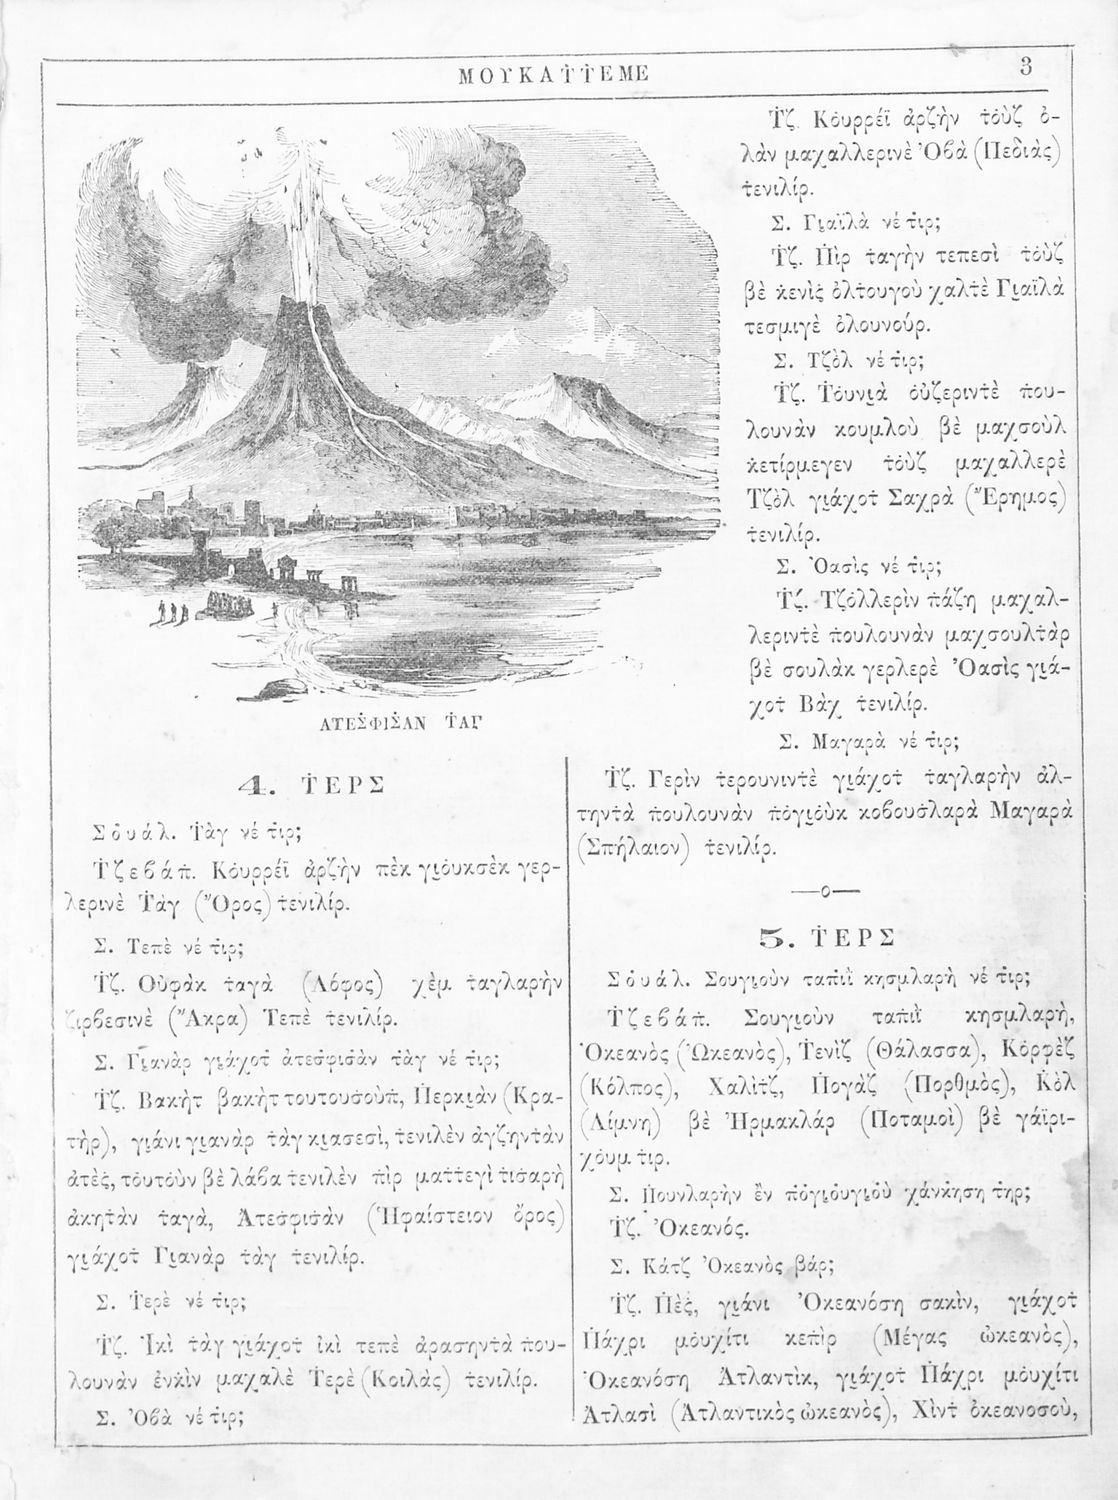 ΜΟΥΚΑΤ̇Τ̇ΕΜΕ
3
ΑΤΕΣ̇ΦΙΣ̇ΑΝ Τ̇ΑΓ
4. Τ̇ΕΡΣ
Σὀυάλ. Τ̇ὰγ νέ τ̇ιρ;
Τ̇ζεβάπ̇. Κὀυρρέϊ ἀρζὴν πὲκ γιὀυκσὲκ γερ-
λερινὲ Τ̇ὰγ (Ὄρος) τ̇ενιλίρ.
Σ. Τεπὲ νέ τ̇ιρ;
Τ̇ζ. Οὐφὰκ τ̇αγὰ (Λόφος) χὲμ τ̇αγλαρὴν
ζιρβεσινὲ (Ἄκρα) Τεπὲ τ̇ενιλίρ.
Σ. Γιανὰρ γιάχοτ̇ ἀτεσ̇φισ̇ὰν τ̇ὰγ νέ τ̇ιρ;
Τ̇ζ. Βακὴτ βακὴτ τουτουσ̇οὺπ̇, Π̇ερκιὰν (Κρα-
τὴρ), γιάνι γιανὰρ τ̇ὰγ κιασεσὶ, τ̇ενιλὲν ἀγζηντ̇ὰν
ἀτὲσ̇, τὀυτὀὺν βὲ λάβα τ̇ενιλὲν π̇ὶρ ματ̇τ̇εγὶ τ̇ισ̇αρὴ
ἀκητ̇ὰν τ̇αγὰ, Ἀτεσ̇φισ̇ὰν (Ἡφαίστειον ὄρος)
γιάχοτ̇ Γιανὰρ τ̇ὰγ τ̇ενιλίρ.
Σ. Τ̇ερὲ νέ τ̇ιρ;
Τ̇ζ. Ἰκὶ τ̇ὰγ γιάχοτ̇ ἰκὶ τεπὲ ἀρασηντ̇ὰ π̇ου-
λουνὰν ἐνκὶν μαχαλὲ Τ̇ερὲ (Κοιλὰς) τ̇ενιλίρ.
Σ. Ὀβὰ νέ τ̇ιρ;
Τ̇ζ. Κὀυρρέϊ ἀρζὴν τ̇ὀὺζ ὀ-
λὰν μαχαλλερινὲ Ὀβὰ (Πεδιὰς)
τ̇ενιλίρ.
Σ. Γιαϊλὰ νέ τ̇ιρ;
Τ̇ζ. Π̇ὶρ τ̇αγὴν τεπεσὶ τ̇ὀὺζ
βὲ κ̇ενὶσ̇ ὀλτ̇ουγοὺ χαλτ̇ὲ Γιαϊλὰ
τεσμιγὲ ὀλουνούρ.
Σ. Τζὸλ νέ τ̇ιρ;
Τ̇ζ. Τ̇ὀυνιὰ ὀὐζεριντ̇ὲ π̇ου-
λουνὰν κουμλοὺ βὲ μαχσοὺλ
κ̇ετίρμεγεν τ̇ὀὺζ μαχαλλερὲ
Τζὸλ γιάχοτ̇ Σαχρὰ (Ἔρημος)
τ̇ενιλίρ.
Σ. Ὀασὶς νέ τ̇ιρ;
Τ̇ζ. Τζὀλλερὶν π̇άζη μαχαλ-
λεριντ̇ὲ π̇ουλουνὰν μαχσουλτ̇ὰρ
βὲ σουλὰκ γερλερὲ Ὀασὶς γιά-
χοτ̇ Βὰχ τ̇ενιλίρ.
Σ. Μαγαρὰ νέ τ̇ιρ;
Τ̇ζ. Γερὶν τ̇ερουνιντ̇ὲ γιάχοτ̇ τ̇αγλαρὴν ἀλ-
τηντ̇ὰ π̇ουλουνὰν π̇ὀγιὀὺκ κοβουσ̇λαρὰ Μαγαρὰ
(Σπήλαιον) τ̇ενιλίρ.
—ο—
5. Τ̇ΕΡΣ
Σὀυάλ. Σουγιοὺν ταπιῒ κησμλαρὴ νέ τ̇ιρ;
Τ̇ζεβάπ̇. Σουγιοὺν ταπιῒ κησμλαρὴ,
Ὀκεανὸς (Ὠκεανὸς), Τ̇ενὶζ (Θάλασσα), Κὀρφὲζ
(Κόλπος), Χαλὶτζ, Π̇ογὰζ (Πορθμὸς), Κ̇ὸλ
(Λίμνη) βὲ Ἠρμακλὰρ (Ποταμοὶ) βὲ γάϊρι-
χὀυμ τ̇ιρ.
Σ. Π̇ουνλαρὴν ἒν π̇ὀγιὀυγιὀὺ χάνκ̇ηση τ̇ηρ;
Τ̇ζ. Ὀκεανός.
Σ. Κάτζ Ὀκεανὸς βάρ;
Τ̇ζ. Π̇ὲσ̇, γιάνι Ὀκεανόση σακὶν, γιάχοτ̇
Π̇άχρι μὀυχίτι κεπ̇ὶρ (Μέγας ὠκεανὸς),
Ὀκεανόση Ἀτλαντὶκ, γιάχοτ̇ Π̇άχρι μὀυχίτι
Ἀτλασὶ (Ἀτλαντικὸς ὠκεανὸς), Χὶντ̇ ὀκεανοσοὺ,